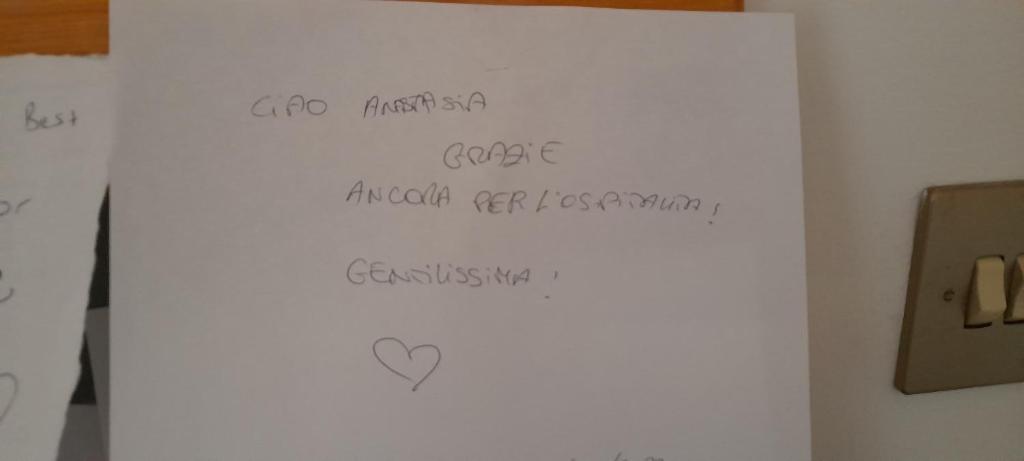 Best
or
CIAO ANASTASIA
GRAZIE
ANCORA PER L'OSPITALITA!
GENTILISSIMA!